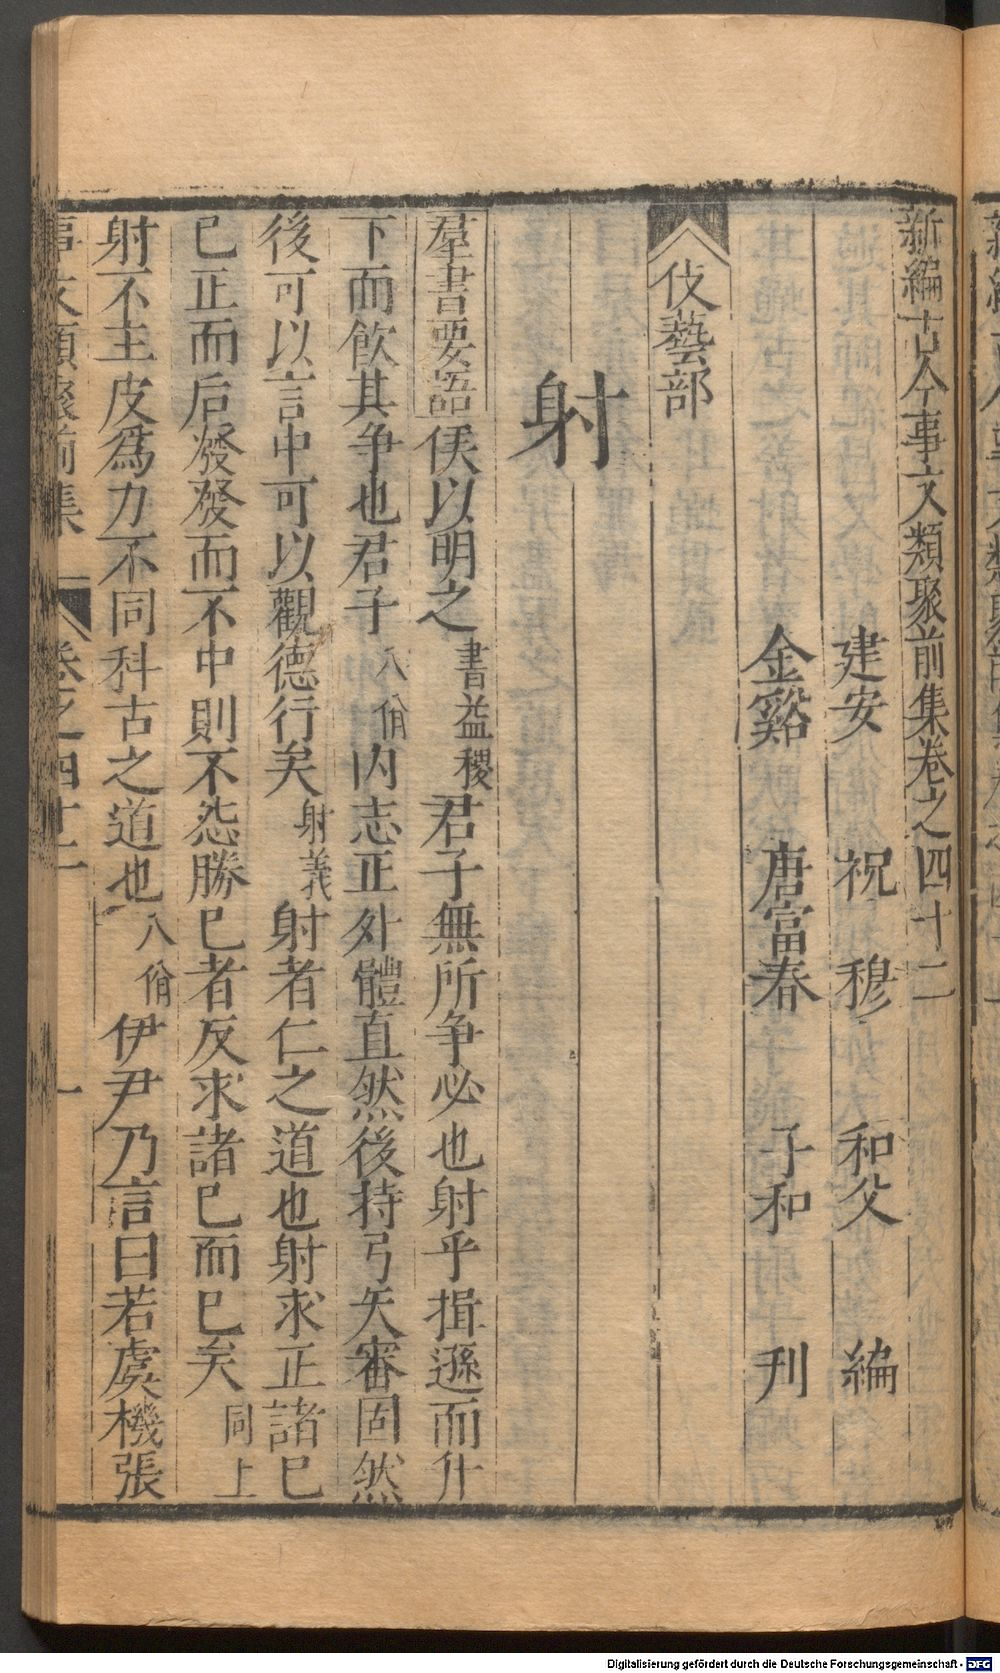 新編古今事文類聚前集卷之四十二
建安 祝 穆 和父 編
金谿 唐富春 子和 刋
伎藝部
射
羣書要語 侯以明之 書益稷 君子無所争必也射乎揖遜而升
下而飲其争也君子 八佾 内志正外體直然後持弓矢審固然
後可以言中可以觀德行矣 射義 射者仁之道也射求正諸已
已正而后發發而不中則不怨勝已者反求諸已而已矣 同上
射不主皮爲力不同科古之道也 八佾 伊尹乃言曰若虞機張
事文類聚前集 卷之四十二 一
Digitalisierung gefördert durch die Deutsche Forschungsgemeinschaft - DFG